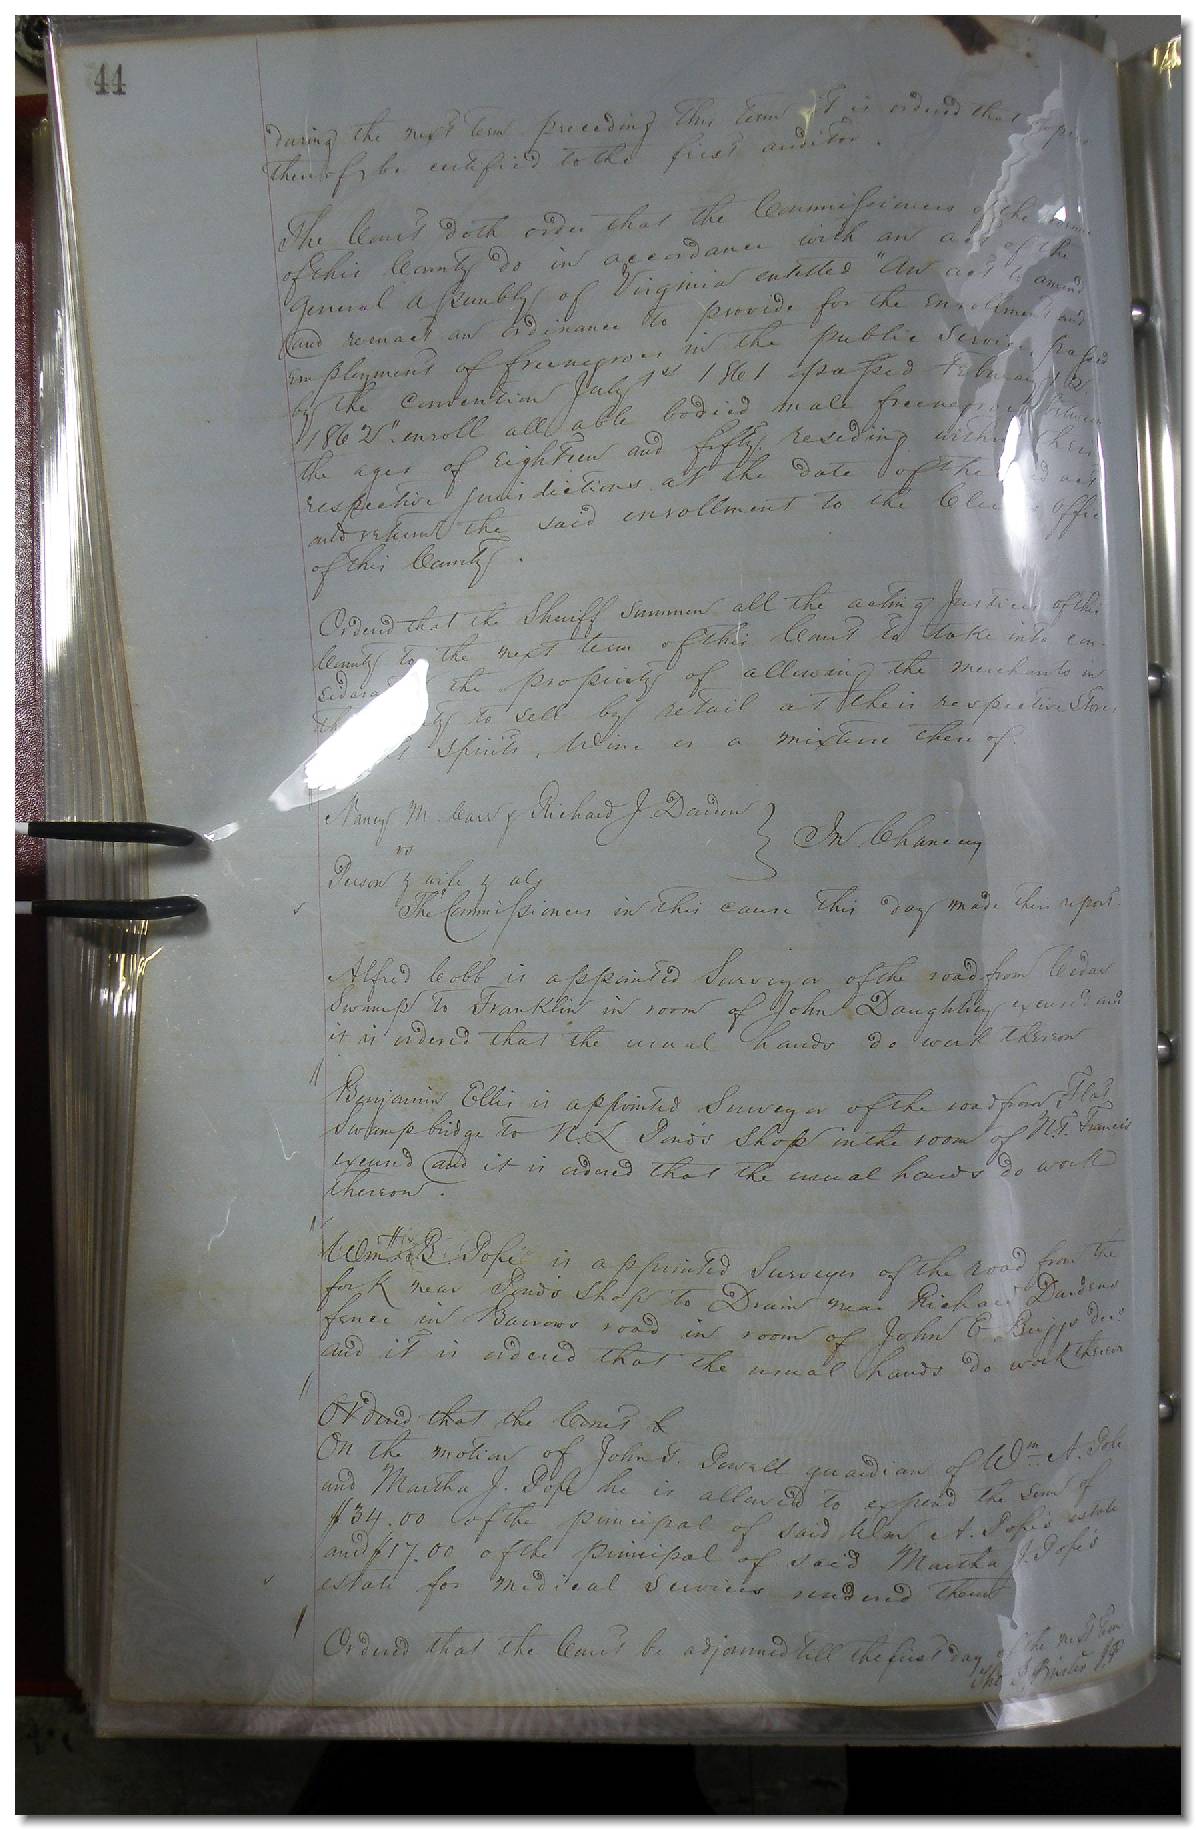 44
during the next term preceding this term it is ordered that
thereof be certified to the first auditor.
The Court doth order that the Commissioners of the
of this County do in accordance with an act of the
General Assembly of Virginia entitled "An act to amend
and reenact an ordinance to provide for the enrollment and
employment of freenegroes in the public service, passed
by the convention July 1st 1861 passed Febuary 12
1862" enroll all able bodied male freenegroes between
the ages of Eighteen and fifty residing within their
respective jurisdictions at the date of the said act
and return the said enrollment to the Clerks Office
of this County.
Ordered that the Sheriff summon all the acting Justices of this
County to the next term of this Court to take into con-
the propriety of allowing the merchants in
to sell by retail at their respective Stores
spirits, Wine or a mixture thereof.
Nancy M. Carr & Richard J. Darden
vs
Person & wife & als
In Chancery
The Commissioners in this cause this day made their report.
Alfred Cobb is appointed Surveyor of the road from Cedar
Swamp to Franklin in room of John Daughtrey excused and
it is ordered that the usual hands do work thereon
Benjamin Ellis is appointed Surveyor of the road from Flat
Swamp bridge to N. L Pond's Shop in the room of N. T. Francis
excused and it is ordered that the usual hands do work
thereon.
Wm H B. Pope is appointed Surveyor of the road from the
fork near Pond's Shop to Drain near Richard Dardens
fence in Barrows road in room of John C Briggs decd
and it is ordered that the usual hands do work thereon
Ordered that the Court &
On the motion of John T. Powell guardian of Wm A. Pope
and Martha J. Pope he is allowed to expend the sum of
$34.00 of the principal of said Wm A. Pope's estate
and $17.00 of the principal of said Martha J. Pope's
estate for medical services rendered them
Ordered that the Court be adjourned till the first day of the next term